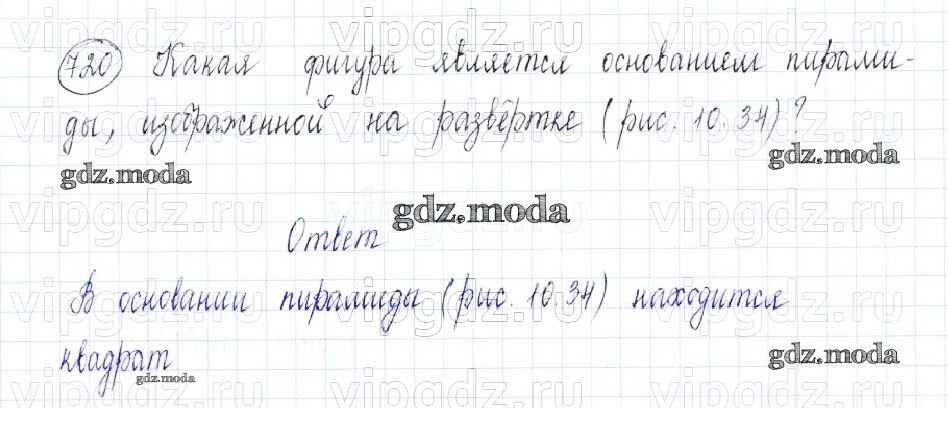 720 Какая фигура является основанием пирами-
ды, изображенной на развёртке (рис. 10.34)?
gdz.moda
gdz.moda
gdz.moda
Ответ
В основании пирамиды (рис. 10.34) находится
квадрат
gdz.moda
gdz.moda
vipgdz.ru vipgdz.ru vipgdz.ru